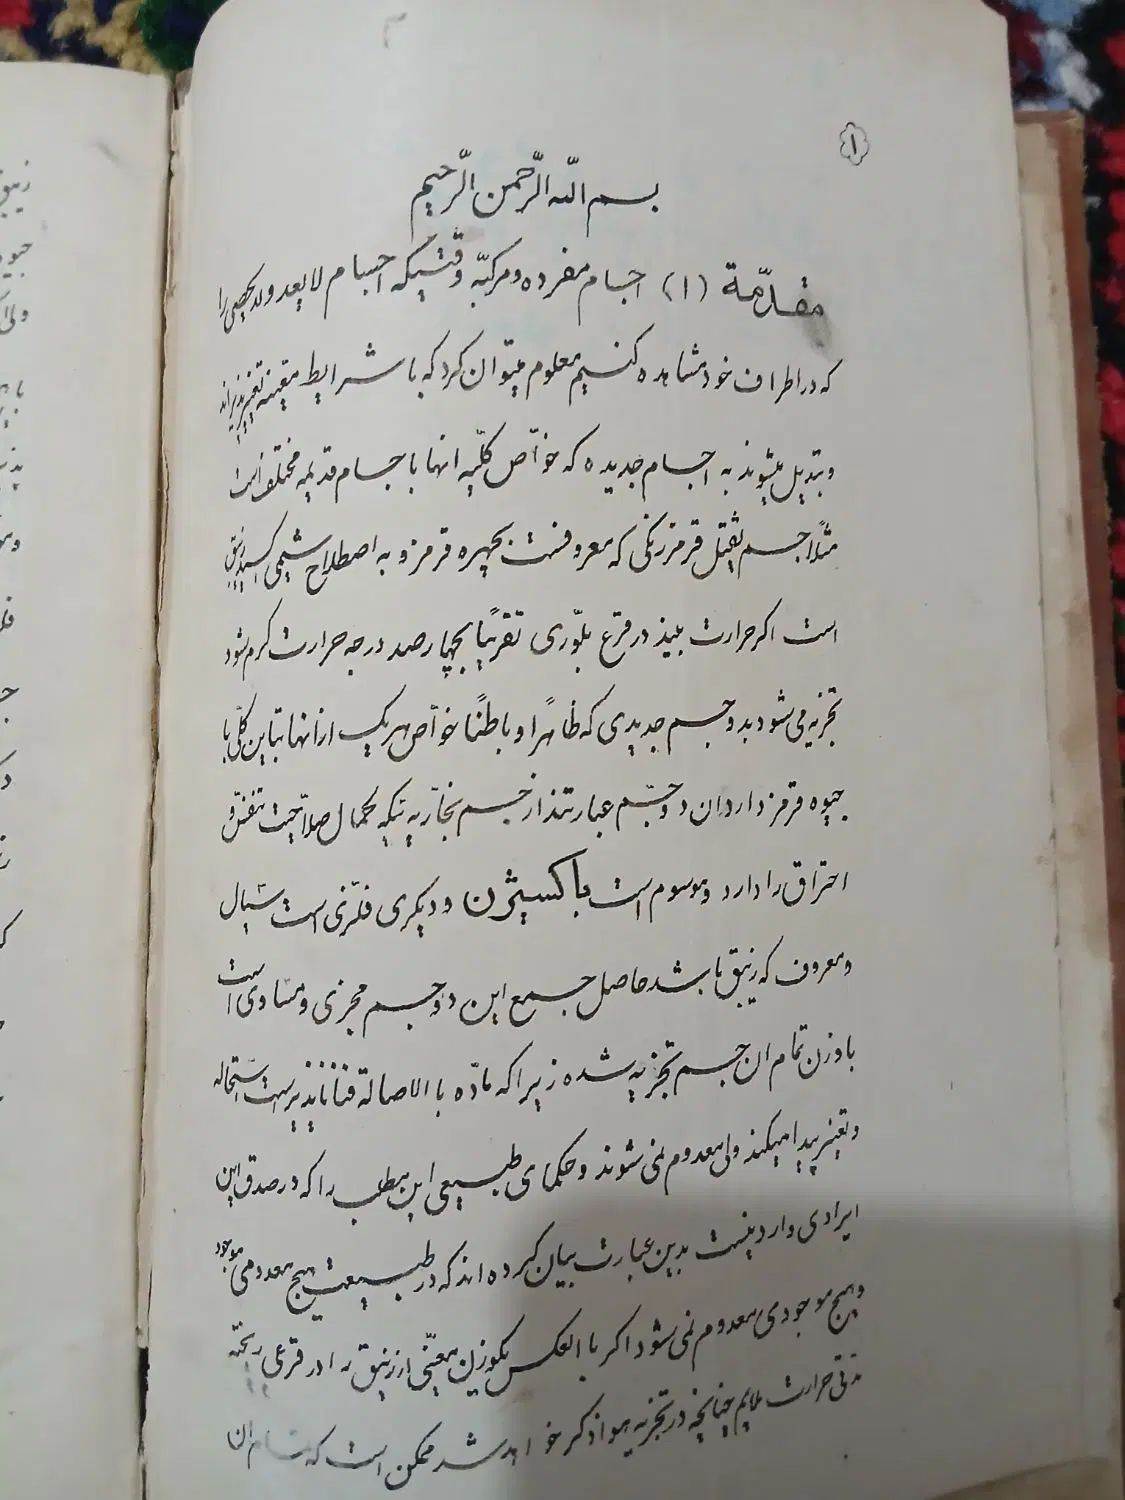 ۱
بسم الله الرّحمن الرّحیم
مقدّمة (۱) اجسام مفرده و مرکبّه وقتیکه اجسام لایعد ولایحصی را
که در اطراف خود مشاهده کنیم معلوم میتوان کرد که با شرایط معینه تغییرپذیراند
و تبدیل میشوند به اجسام جدیده که خوّاص کلّیه انها با جسام قدیمه مختلف است
مثلاً جسم ثقیل قرمز رنکی که معروفست بجهره قرمز و به اصطلاح شیمی اکسید زیبق
است اکر حرارت بیند در قرع بلّوری تقریبًا بچهارصد درجه حرارت کرم شود
تجزیه می شود بدو جسم جدیدی که ظاهرًا و باطنًا خوّاص هریک ازانها تباین کلّی با
جیوه قرمز دارد ان دو جسم عبارتند از جسم بخاریه تیکه کمال صلاحیت تنفس و
احتراق را دارد و موسوم است باکسیژن و دیکری فلزّی است سیّال
و معروف که زیبق باشد حاصل جمع این دو جسم مجزی و مساوی است
با وزن تمام ان جسم تجزیه شده زیرا که مادّه با الاصالة فنا ناپذیرست استحاله
و تغییر پیدا میکند ولی معدوم نمی شوند و حکمای طبیعی این مطلب را که در صدق این
ایرادی وارد نیست بدین عبارت بیان کرده اند که در طبیعت هیچ معدومی موجود
و هیچ موجودی معدوم نمی شود اکر با العکس یکوزن معیّنی از زیبق را در قرعی ریخته
مدّتی حرارت ملایم چنانچه در تجزیه هوا ذکر خواهد شد ممکن است که تمام ان